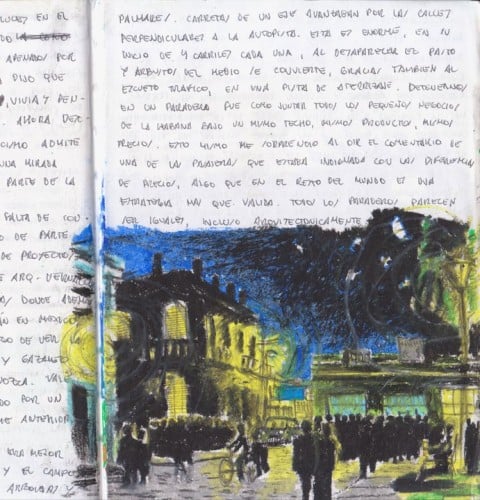 EN EL
POR
QUE
, VIVIA Y PEN-
. AHORA DES-
ADMITE
MIRADA
PARTE DE LA
FALTA DE CON-
DE PARTE
DE PROYECTOS
ARQ.
DONDE
EN MEXICO
DE VER LA
Y
VALE
DO POR UN
ME ANTERIOR
UNA MEJOR
Y EL CAMPO
Y
PALMARES. CARRETAS DE UN EJE AVANZABAN POR LAS CALLES
PERPENDICULARES A LA AUTOPISTA. ESTA ES ENORME, EN SU
INICIO DE 4 CARRILES CADA UNA, AL DESAPARECER EL PASTO
Y ARBUSTOS DEL MEDIO SE CONVIERTE, GRACIAS TAMBIEN AL
ESCUETO TRAFICO, EN UNA PISTA DE ATERRIZAJE. DETENERNOS
EN UN PARADERO FUE COMO JUNTAR TODOS LOS PEQUEÑOS NEGOCIOS
DE LA HABANA BAJO UN MISMO TECHO, MISMOS PRODUCTOS, MISMOS
PRECIOS. ESTO MISMO ME SORPRENDIO AL OIR EL COMENTARIO DE
UNA DE LAS PASAJERAS QUE ESTABA INDIGNADA CON LAS DIFERENCIAS
DE PRECIOS, ALGO QUE EN EL RESTO DEL MUNDO ES UNA
ESTRATEGIA MAS QUE VALIDA. TODOS LOS PARADEROS PARECEN
SER IGUALES, INCLUSO ARQUITECTONICAMENTE